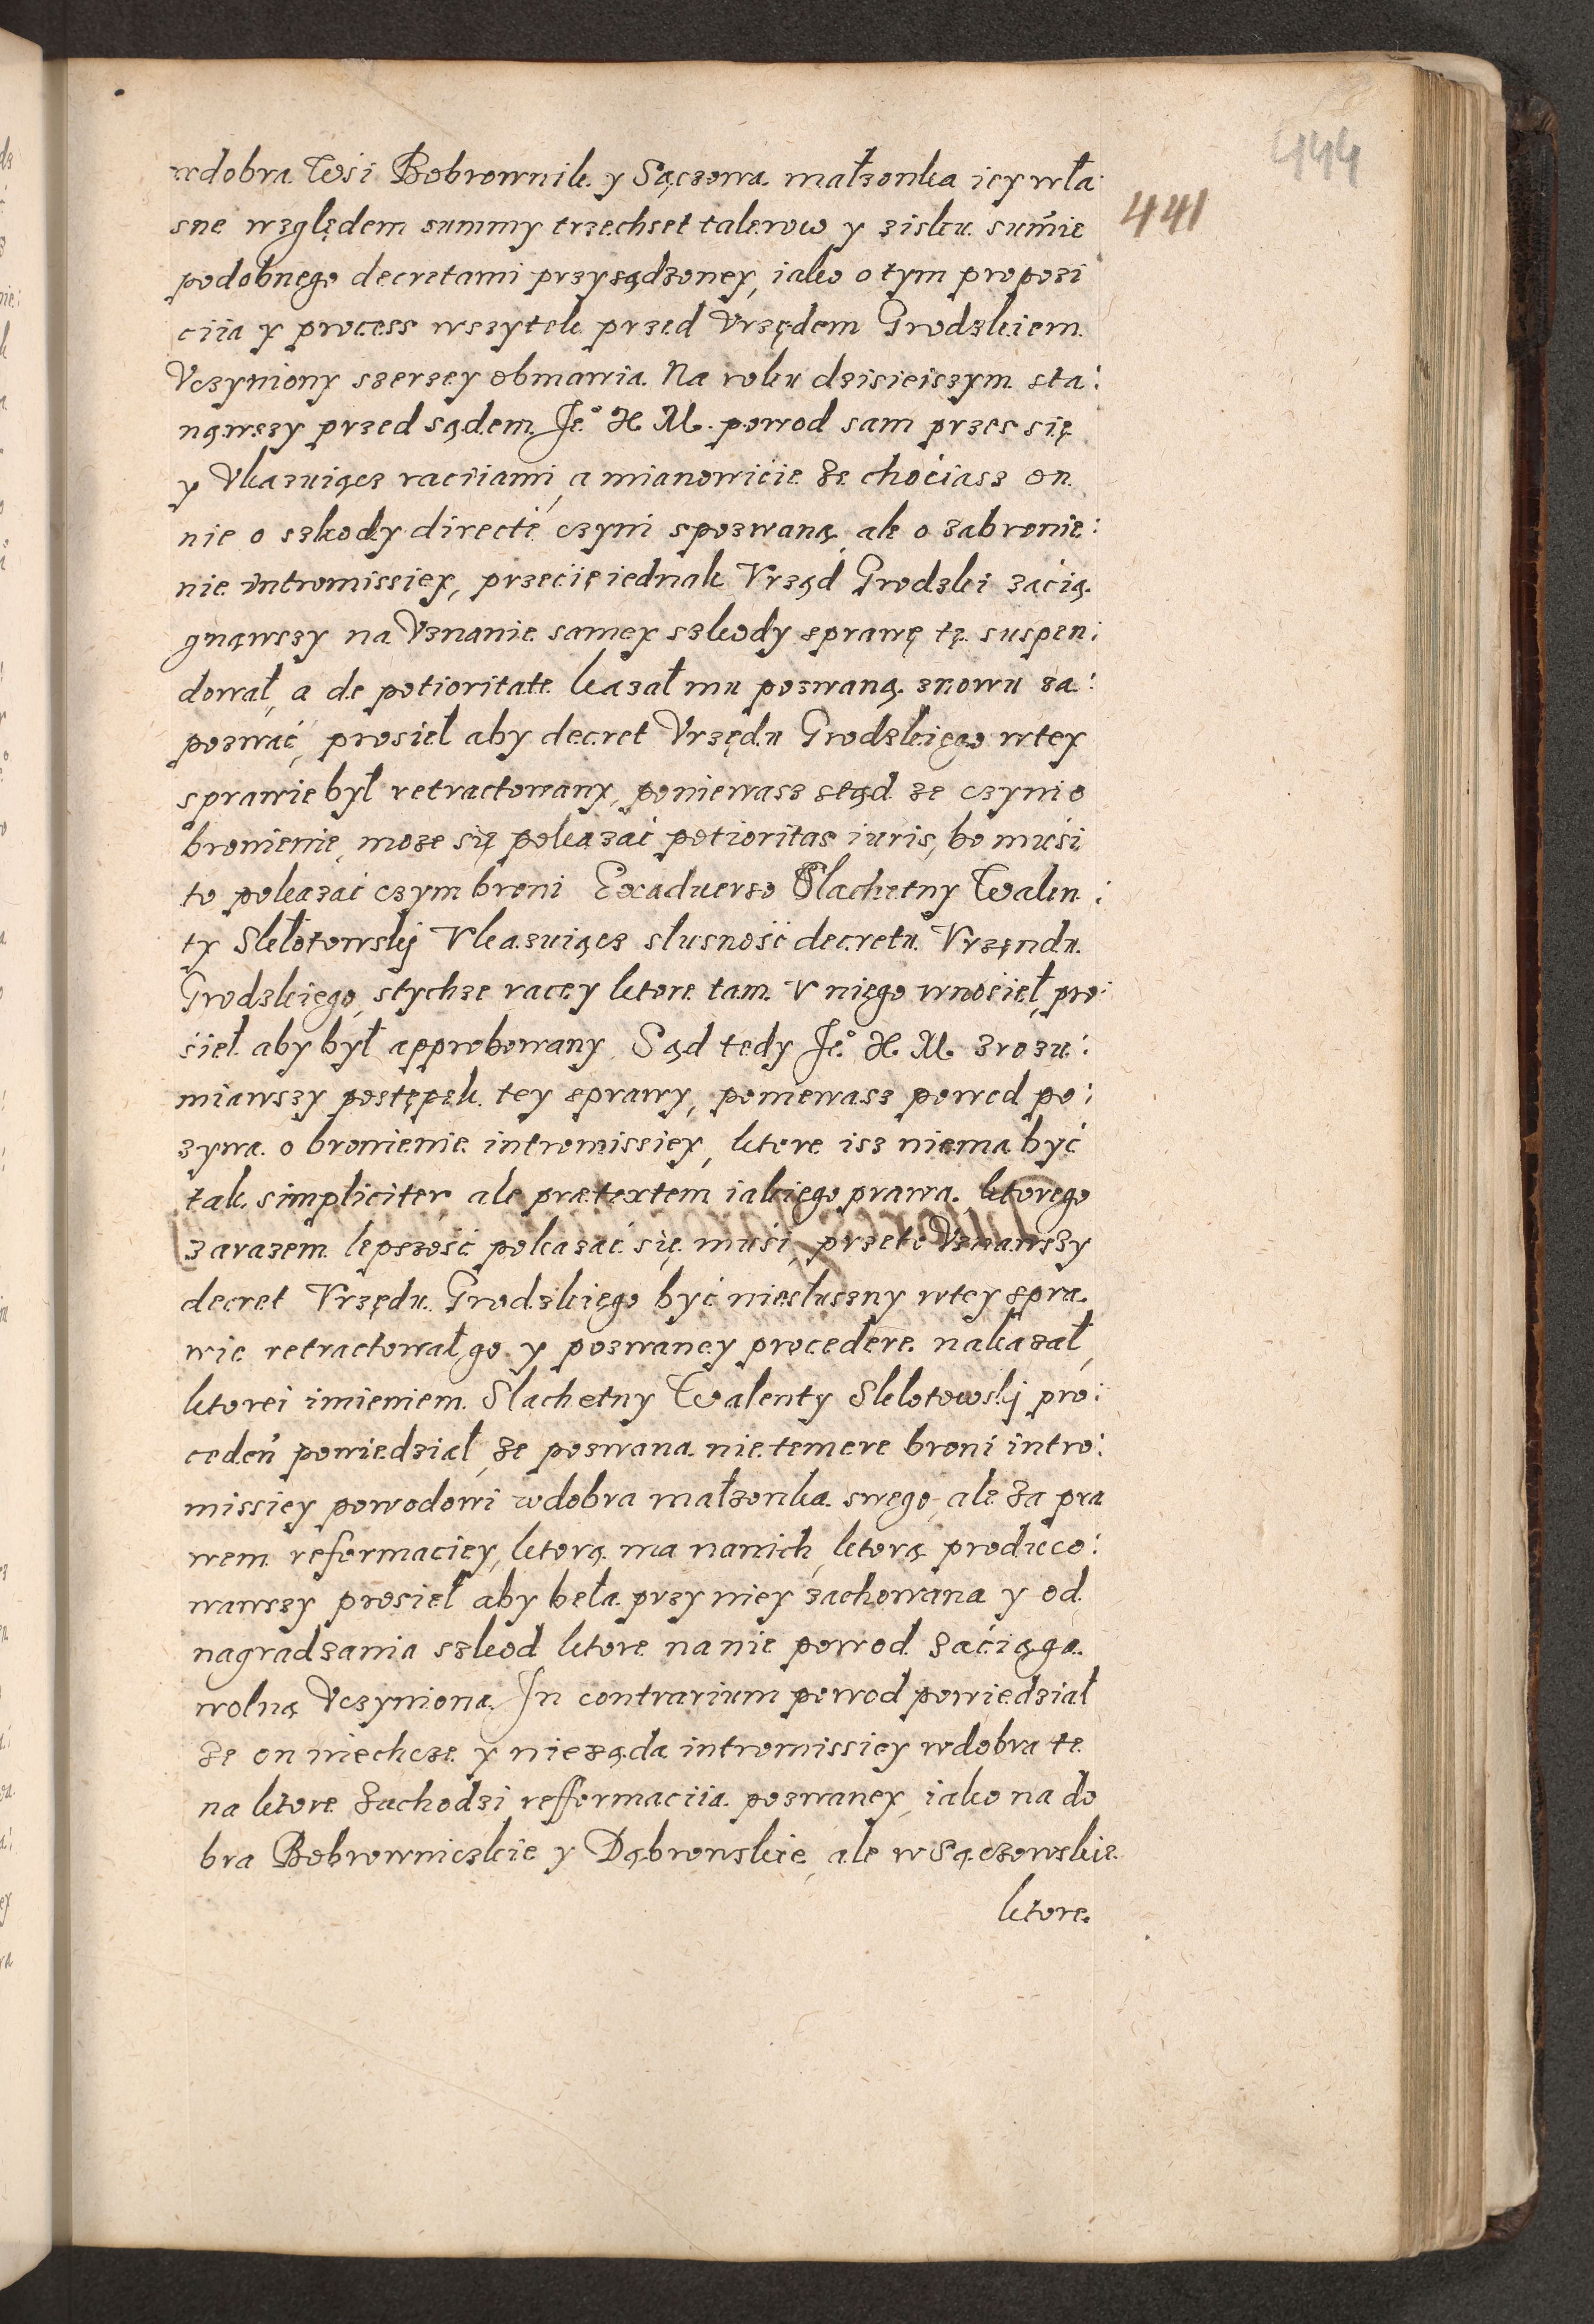 444
441
wdobra Wsi Bobrownik y Sączowa małzonka iey wła
sne względem summy trzechset talerow y zisku sumie
podobnęgo decretami przysądzoney, iako o tym propozi
ciia y process wszytek przed Vrzędem Grodzkiem
Vczyniony szerzey obmawia. Na roku dzisieiszym sta:
nąwszy przed sądem Je° X. M. powod sam przes się
y Vkazuiącz raciiami, a mianowicie że chociasz on
nie o szkody directe czyni spozwaną, ale o zabronie:
nie intromissiey, przecię iednak Vrząd Grodzki zacią
gnąwszy na Vznanie samey szkody sprawę tę suspen:
dował, a de potioritate kazał mu pozwaną znowu za:
pozwać, prosieł aby decret Vrzędu Grodzkięgo wtey
sprawie był retractowany, poniewasz stąd ze czyni o
bronienie, moze się pokazać potioritas iuris, bo muśi
to pokazać czym broni Exaduerso Slachetny Walen:
ty Sklotowskj Vkazuiącz slusność decretu Vrzendu
Grodzkięgo, stychze racey ktore tam V niego wnosieł, pro:
sieł aby był approbowany. Sąd tedy Je° X. M. zrozu:
miawszy postępek tey sprawy, poniewasz powod po:
zywa o bronienie intromissiey, ktore isz niema być
tak simpliciter ale prætextem iakięgo prawa, ktorego
zarazem lepszość pokazać się musi, przeto Vznawszy
decret Vrzędu Grodzkięgo być niesłuszny wtey spra
wie retractował go y pozwaney procedere nakazał,
ktorei imieniem Slachetny Walenty Sklotowskj pro:
ceden powiedział, że pozwana nie temere broni intro:
missiey powodowi wdobra małzonka swęgo, ale za pra
wem reformaciey, ktorą ma nanich, ktorą produco:
wawszy prosieł aby beła przy niey zachowana y od
nagradzania szkod ktore na nie powod zaciąga
wolną Vczyniona. In contrarium powod powiedział
że on niechcze y nieząda intromissiey wdobra te
na ktore zachodzi refformaciia pozwaney, iako na do
bra Bobrowniczkie y Dąbrowskie, ale w Sączowskie
ktore.